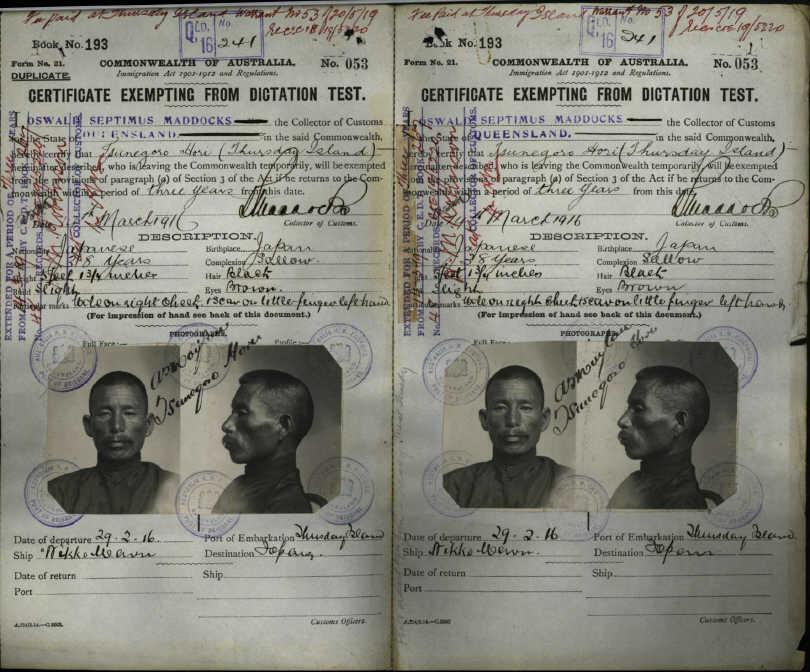 Fee Paid at Thursday Island Warrant No 53 of 20/5/19
QLD.
16
No.
241
Book No. 193
Form No. 21.
COMMONWEALTH OF AUSTRALIA.
No. 053
DUPLICATE.
Immigration Act 1901-1912 and Regulations.
CERTIFICATE EXEMPTING FROM DICTATION TEST.
OSWALD SEPTIMUS MADDOCKS the Collector of Customs
for the State of QUEENSLAND. in the said Commonwealth,
hereby certify that Tsunegoro Hori (Thursday Island)
hereinafter described, who is leaving the Commonwealth temporarily, will be exempted
from the provisions of paragraph (a) of Section 3 of the Act if he returns to the Com-
monwealth within a period of three years from this date.
Date March 1916
Collector of Customs.
DESCRIPTION.
Nationality Japanese Birthplace Japan
38 years Complexion Sallow
5 feet 1 3/4 inches Hair Black
Build Slight Eyes Brown
marks Mole on right cheek. Scar on little finger left hand
(For impression of hand see back of this document.)
PHOTOGRAPHS.
Full Face:— Profile:—
Tsunegoro Hori
Date of departure 29.2.16. Port of Embarkation Thursday Island
Ship "Nikko Maru" Destination Japan.
Date of return Ship
Port
Customs Officers.
EXTENDED FOR A PERIOD OF THREE YEARS
COLLECTOR OF CUSTOMS.
Fee Paid at Thursday Island Warrant No 53 of 20/5/19
QLD.
16
No.
241
Book No. 193
Form No. 21.
COMMONWEALTH OF AUSTRALIA.
No. 053
Immigration Act 1901-1912 and Regulations.
CERTIFICATE EXEMPTING FROM DICTATION TEST.
OSWALD SEPTIMUS MADDOCKS the Collector of Customs
for the State of QUEENSLAND. in the said Commonwealth,
hereby certify that Tsunegoro Hori (Thursday Island)
hereinafter described, who is leaving the Commonwealth temporarily, will be exempted
from the provisions of paragraph (a) of Section 3 of the Act if he returns to the Com-
monwealth within a period of three years from this date.
Date March 1916
Collector of Customs.
DESCRIPTION.
Nationality Japanese Birthplace Japan
38 years Complexion Sallow
5 feet 1 3/4 inches Hair Black
Slight Eyes Brown
marks Mole on right cheek. Scar on little finger left hand
(For impression of hand see back of this document.)
PHOTOGRAPHS.
Tsunegoro Hori
Date of departure 29.2.16 Port of Embarkation Thursday Island
Ship Nikko Maru. Destination Japan
Date of return Ship
Port
Customs Officers.
EXTENDED FOR A PERIOD OF THREE YEARS